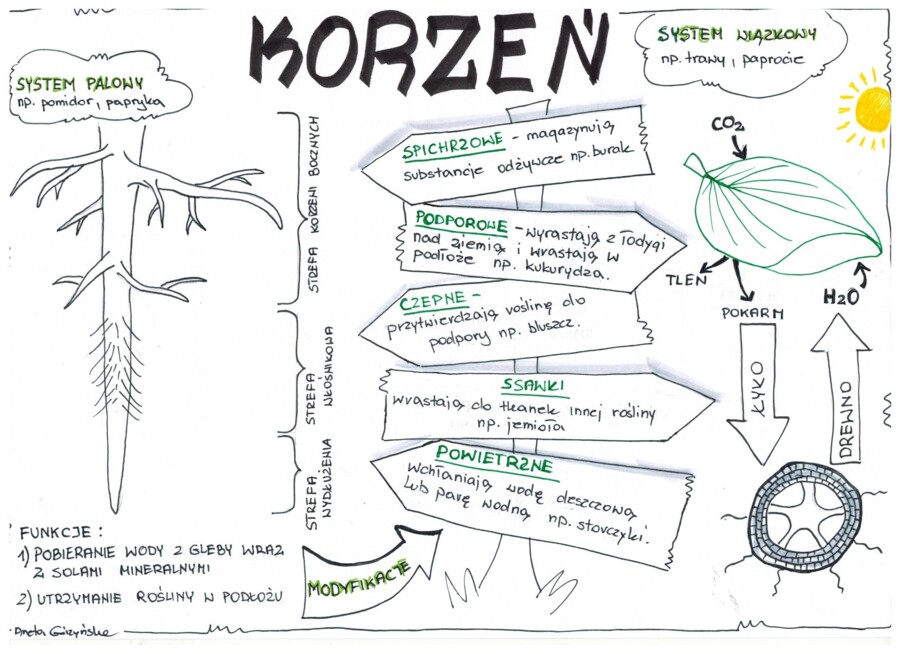 KORZEŃ
SYSTEM PALOWY
np. pomidor, papryka
SYSTEM WIĄZKOWY
np. trawy, paprocie
STREFA KORZENI BOCZNYCH
STREFA
WŁOŚNIKOWA
STREFA
WYDŁUŻENIA
SPICHRZOWE - magazynują
substancje odżywcze np. burak
PODPOROWE - wyrastają z łodygi
nad ziemią i wrastają w
podłoże np. kukurydza.
CZEPNE -
przytwierdzają roślinę do
podpory np. bluszcz.
SSAWKI
wrastają do tkanek innej rośliny
np. jemioła
POWIETRZNE
wchłaniają wodę deszczową
lub parę wodną np. storczyki.
MODYFIKACJE
CO2
TLEN
POKARM
H2O
ŁYKO
DREWNO
FUNKCJE:
1) POBIERANIE WODY Z GLEBY WRAZ
Z SOLAMI MINERALNYMI
2) UTRZYMANIE ROŚLINY W PODŁOŻU
Aneta